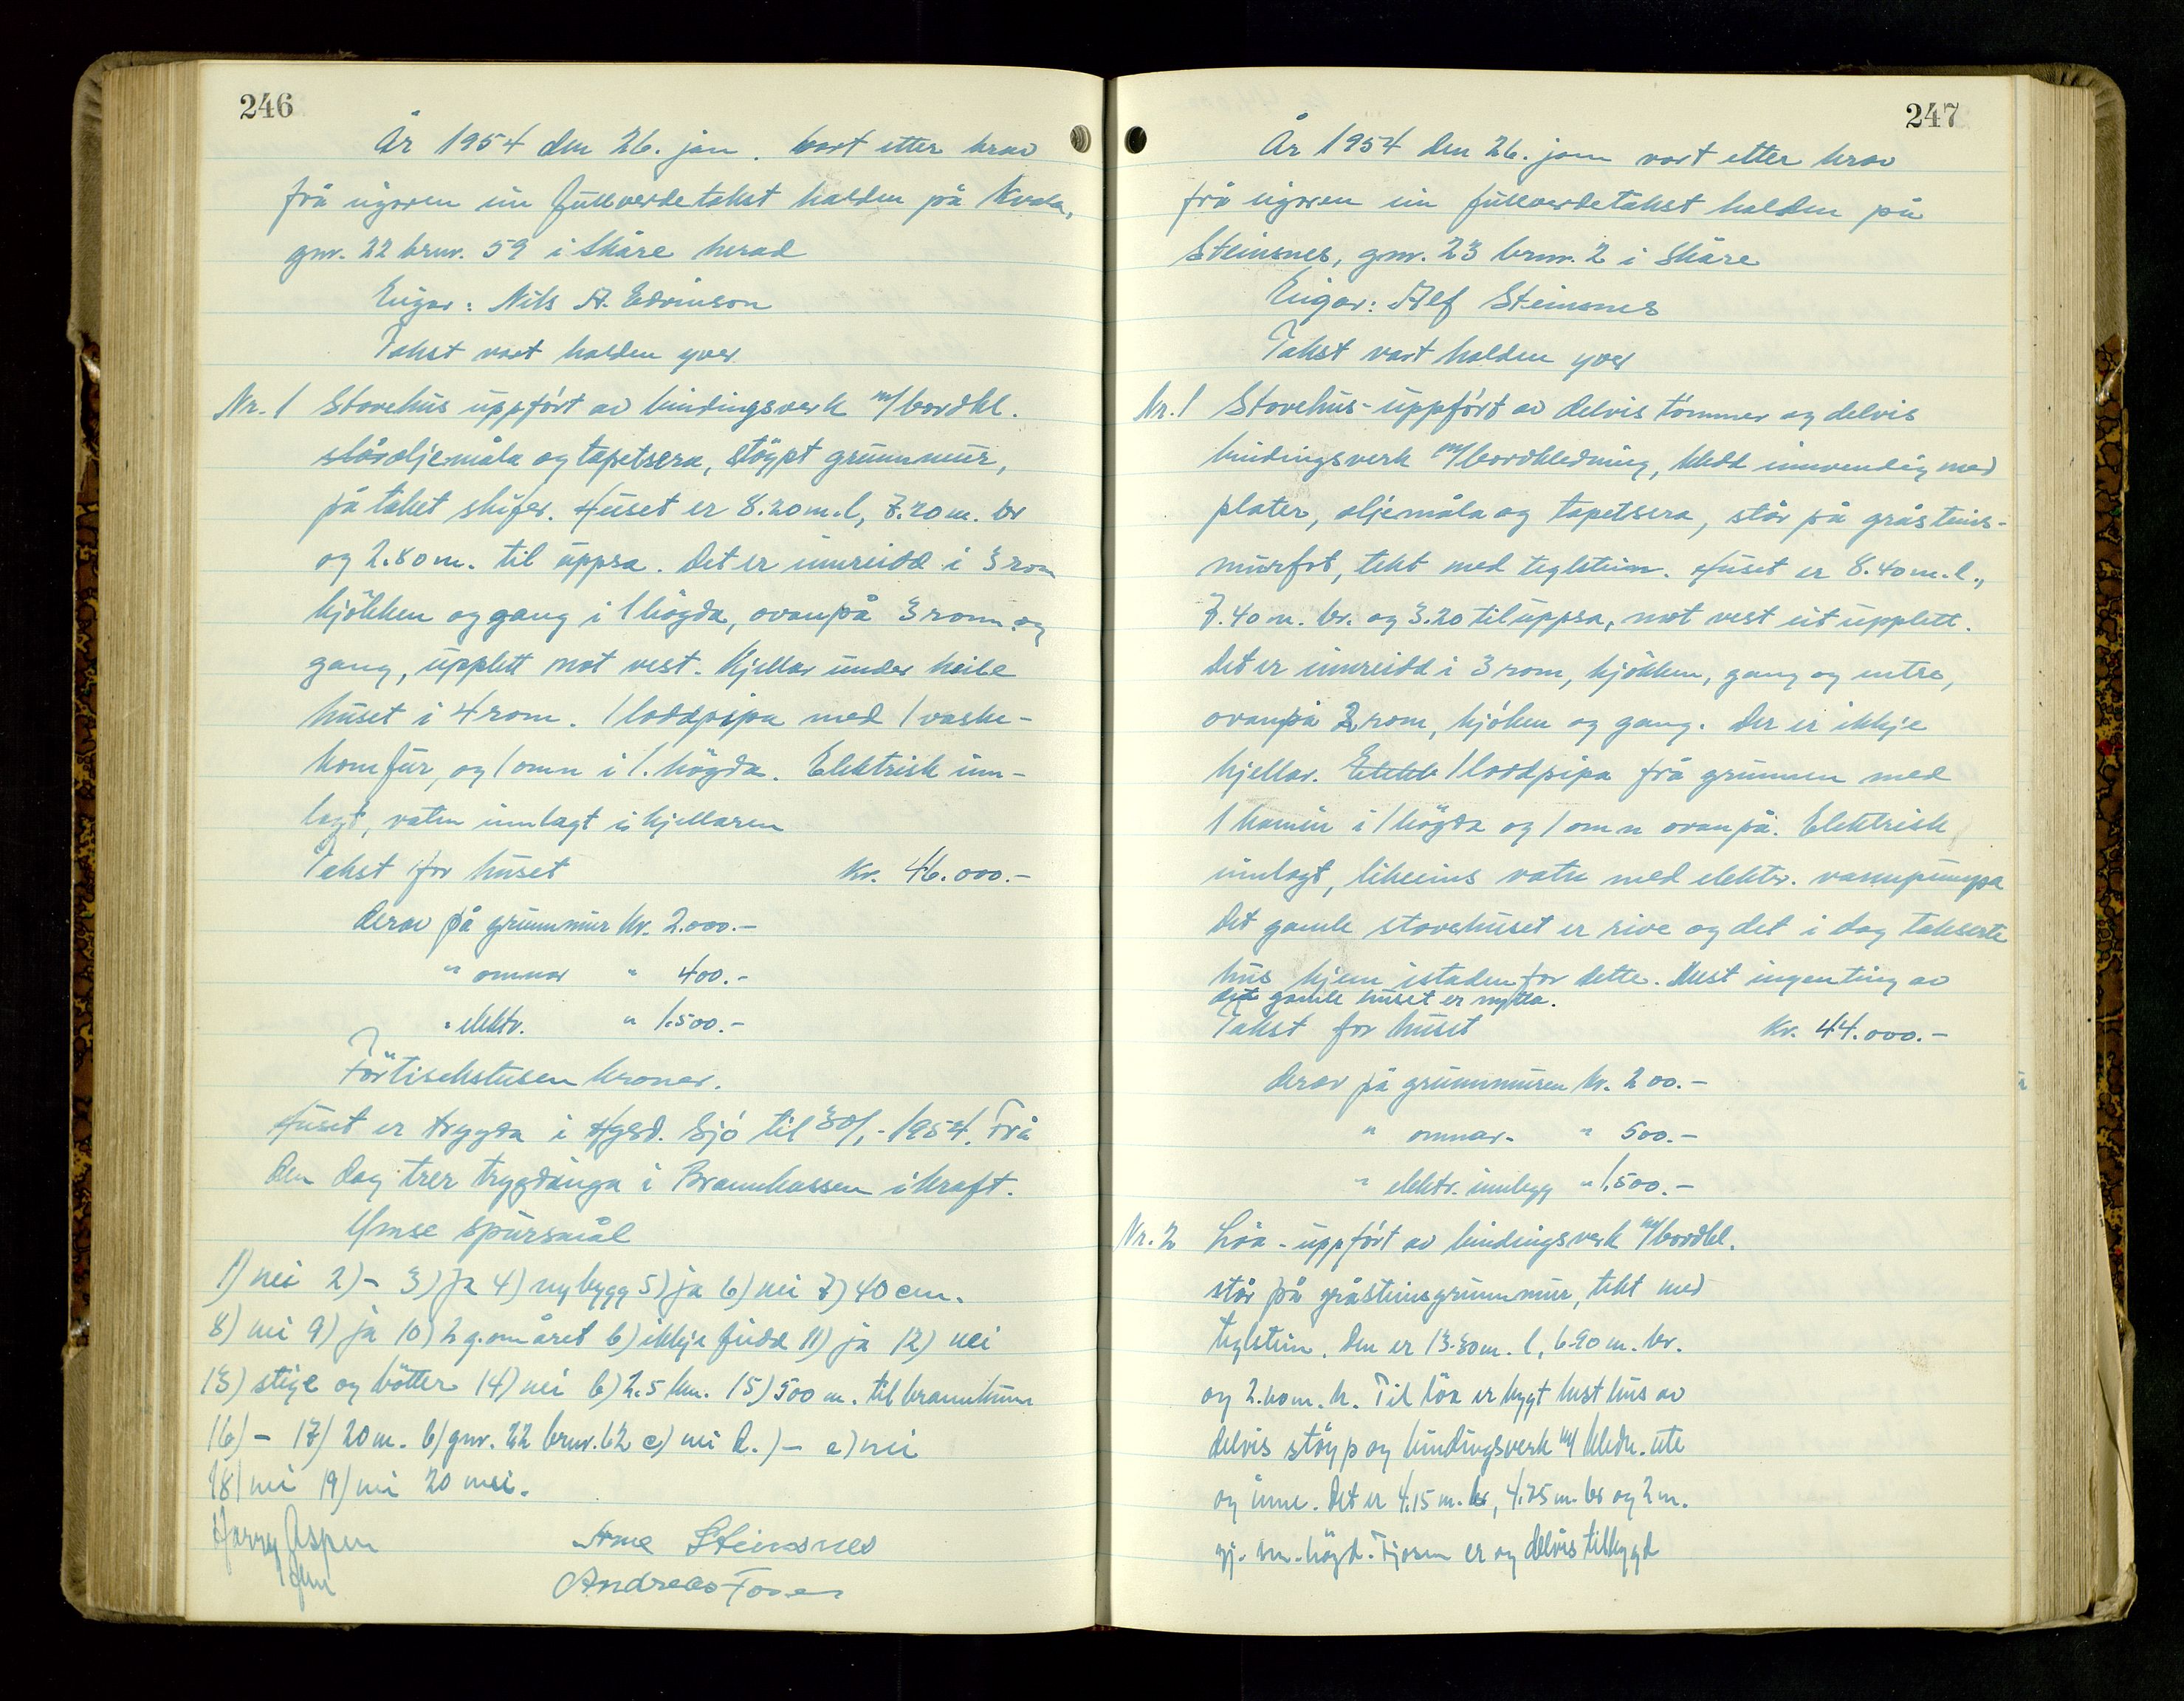 246
År 1954 den 26. jan. vart etter krav
frå eigaren ein fullverdetakst halden på Kvala,
gnr. 22 brnr. 59 i Skåre herad
Eigar: Nils A. Edvinson
Takst vart halden yver
Nr. 1 Stovehus uppført av bindingsverk m/bordkl.
står oljemåla og tapetsera, støypt grunnmur,
på taket skifer. Huset er 8.20 m. l, 7.20 m. br
og 2.80 m. til uppsa. Det er innreidd i 3 rom
kjøkken og gang i 1 høgda, ovanpå 3 rom og
gang, upplett mot vest. Kjellar under heile
huset i 4 rom. 1 loddpipa med 1 vaske-
komfur, og 1 omn i 1. høgda. Elektrisk inn-
lagt, vatn innlagt i kjellaren
Takst for huset Kr. 46.000.-
derav på grunnmur kr. 2.000.-
" omnar " 400.-
" elektr. " 1.500.-
Førtisekstusen kroner.
Huset er trygda i Hgsd. Sjø til 30/1-1954. Frå
den dag trer trygdinga i Brannkassen i kraft.
Ymse spursmål
1) nei 2) - 3) ja 4) nybygg 5) ja 6) nei 7) 40 cm.
8) nei 9) ja 10) 2 g. om året b) ikkje fidd 11) ja 12) nei
13) stige og bøtter 14) nei b) 2.5 km. 15) 500 m. til brannkum
16) - 17) 20 m. b) gnr. 22 brnr. 62 c) nei d.) - e) nei
18) nei 19) nei 20 nei.
Harry Aspen Arne Steinsnes
Andreas
247
År 1954 den 26. jan vart etter krav
frå eigaren ein fullverdetakst halden på
Steinsnes, gnr. 23 brnr. 2 i Skåre
Eigar: Alf Steinsnes
Takst vart halden yver
Nr. 1 Stovehus - uppført av delvis tømmer og delvis
bindingsverk m/bordkledning, kledd innvendig med
plater, oljemåla og tapetsera, står på gråsteins-
murfot, tekt med teglstein. Huset er 8.40 m. l.,
7.40 m. br. og 3.20 til uppsa, mot vest eit upplett.
Det er innreidd i 3 rom, kjøkken, gang og entre,
ovanpå 2 rom, kjøken og gang. Der er ikkje
kjellar. Elekt 1 loddpipa frå grunnen med
1 kamin i 1 høgda og 1 omn ovanpå. Elektrisk
innlagt, likeeins vatn med elektr. vannpumpa
Det gamle stovehuset er rive og det i dag takserte
hus kjem istaden for dette. Mest ingenting av
det gamle huset er nytta.
Takst for huset Kr. 44.000.-
derav på grunnmuren kr. 200.-
" omnar - " 500.-
" elektr. innlegg " 1.500.-
Nr. 2 Løa - uppført av bindingsverk m/bordkl.
står på gråsteinsgrunnmur, tekt med
teglstein. Den er 13.30 m. l, 6.90 m. br.
og 2.40 m. h. Til løa er bygt hust hus av
delvis støyp og bindingsverk m/ kledn. ute
og inne. Det er 4.15 m. br, 4.25 m. br og 2 m.
gj. sn. høgd. Fjosen er og delvis tilbygd